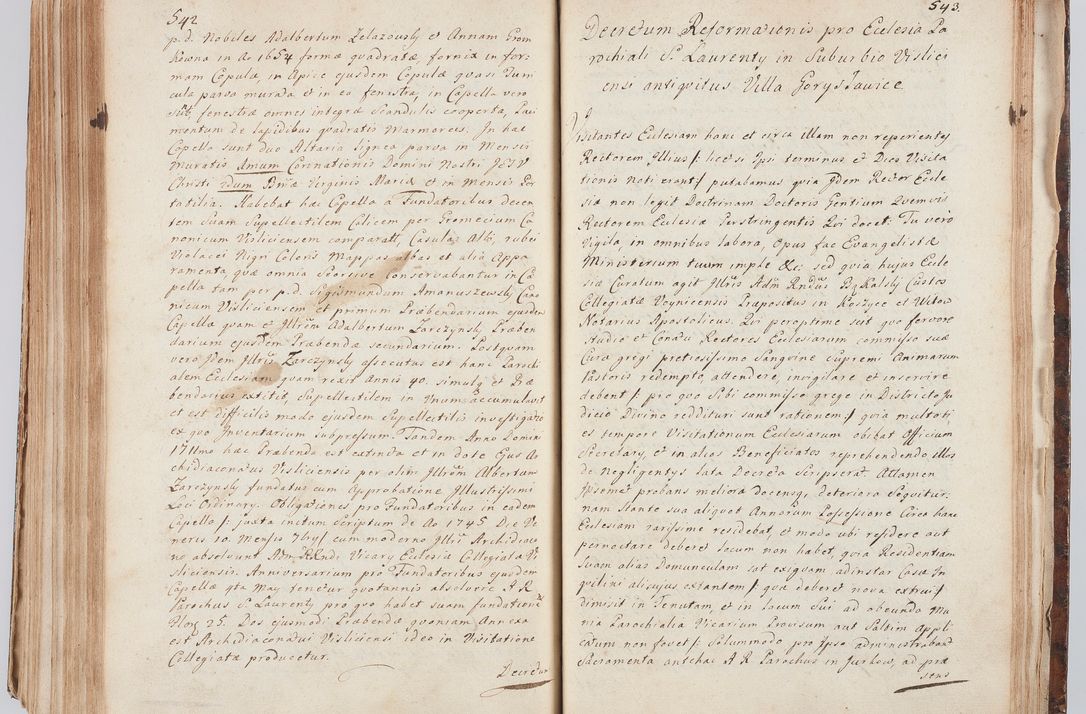 542
p. d. Nobiles Adalbertum Zelazowsky et Annam Grom
kowna in Ao 1654 formæ quadratæ, fornix in for-
mam Copulæ, in Apice ejusdem Copulæ quasi Turri
cula parva murata et in eo fenestra, in Capella vero
sub, fenestræ omnes integræ Scandulis cooperta, Pavi
mentum de lapidibus quadratis Marmoreis. In hac
Capella sunt duo Altaria lignea parva in Mensis
Muratis 1mum Coronationis Domini Nostri JESV
Christi 2dum Bmæ Virginis Mariæ et in Mensis Por
tatilia. Habebat hæc Capella a Fundatoribus decen
tem suam Supellectilem Calicem per Gromecium Ca
nonicum Visliciensem comparatt, Casulas Albi, rubei
Violacei Nigri Coloris Mappas albas et alia Appa
ramenta, quæ omnia Seorsive conservabantur in Ca
pella tam per p. d. Sigismundum Amanuszewsky Cano
nicum Visliciensem et primum Præbendarium ejusdem
Capellæ quam et Illrem Adalbertum Zarczynsky Præben
darium ejusdem Præbendæ secundarium. Postquam
vero Idem Illris Zarczynsky assecutus est hanc Parochi
alem Ecclesiam quam rexit Annis 40. simulq et Præ
bendarius extitit, Supellectilem in Vnum accumulavit
et est difficilis modo ejusdem Supellectilis investigatio
ex quo Inventarium subpressum. Tandem Anno Domini
1711mo hæc Præbenda est extincta et in dote Ejus Ar
chidiaconatus Visliciensis per olim Illrem Albertum
Zarczynsky fundatus cum Approbatione Illustrissimi
Loci Ordinarÿ. Obligationes pro Fundatoribus in eadem
Capella /: juxta initum Scriptum de Ao 1745 Die Ve
neris 10. Mensis 7bris/ cum moderno Illri Archidiaco
no absolvunt Adm RRndi Vicarÿ Ecclesiæ Collegiatæ Vi
sliciensis. Anniversarium pro Fundatoribus ejusdem
Capellæ 9ta May tenetur quotannis absolvere A R
Parochus S. Laurentÿ pro quo habet suam fundationem
Flor. 25. Dos ejusmodi Præbendæ quoniam Annexa
est Archidiaconatui Visliciensi ideo in Visitatione
Collegiatæ producetur.
Decretum
543.
Decretum Reformationis pro Ecclesia Pa
rochiali S. Laurentÿ in Suburbio Vislici
ensi antiquitus Villa Goryslawice.
Visitantes Ecclesiam hanc et circa illam non reperientes
Rectorem Illius /: licet si Ipsi terminus et Dies Visita
tionis noti erant/ putabamus quia Idem Rector Eccle
siæ non legit Doctrinam Doctoris Gentium Quemvis
Rectorem Ecclesiæ Perstringentis Qui docet: Tu vero
Vigila, in omnibus labora, Opus fac Evangelistæ
Ministerium tuum imple &c: sed quia hujus Eccle
siæ Curatum agit Illris Adm Rndus Bykalsky Custos
Collegiatæ Voynicensis Præpositus in Koszyce et Uktow
Notarius Apostolicus. Qui peroptime scit quo fervore
Studio et Conatu Rectores Ecclesiarum commisso suæ
Curæ gregi pretiosissimo Sanguine supremi Animarum
Pastoris redempto, attendere, invigilare et inservire
debent / pro quo Sibi commisso grege in Districto Ju
dicio Divino reddituri sunt rationem / quia multoti
es tempore Visitationum Ecclesiarum obibat Officium
Secretarÿ, et in alios Beneficiatos reprehendendo illos
de Negligentÿs lata Decreta Scripserat. Attamen
Ipsemet probans meliora docensq, deteriora Sequitur:
nam stante sua aliquot Annorum Possessione Circa hanc
Ecclesiam rarissime residebat, et modo ubi residere aut
pernoctare deberet locum non habet, quia Residentiam
Suam alias Domunculam sat exiguam adinstar Casæ In
quilini alicujus extantem / quæ deberet nova extrui/
dimisit in Tenutam, et in locum Sui ad obeunda Mu
nia Parochialia Vicarium Provisum aut Saltim Appli
catum non fovet / Solummodo pro Ipso administrabat
Sacramenta antehac A R Parochus in Jurkow, ad præ
sens